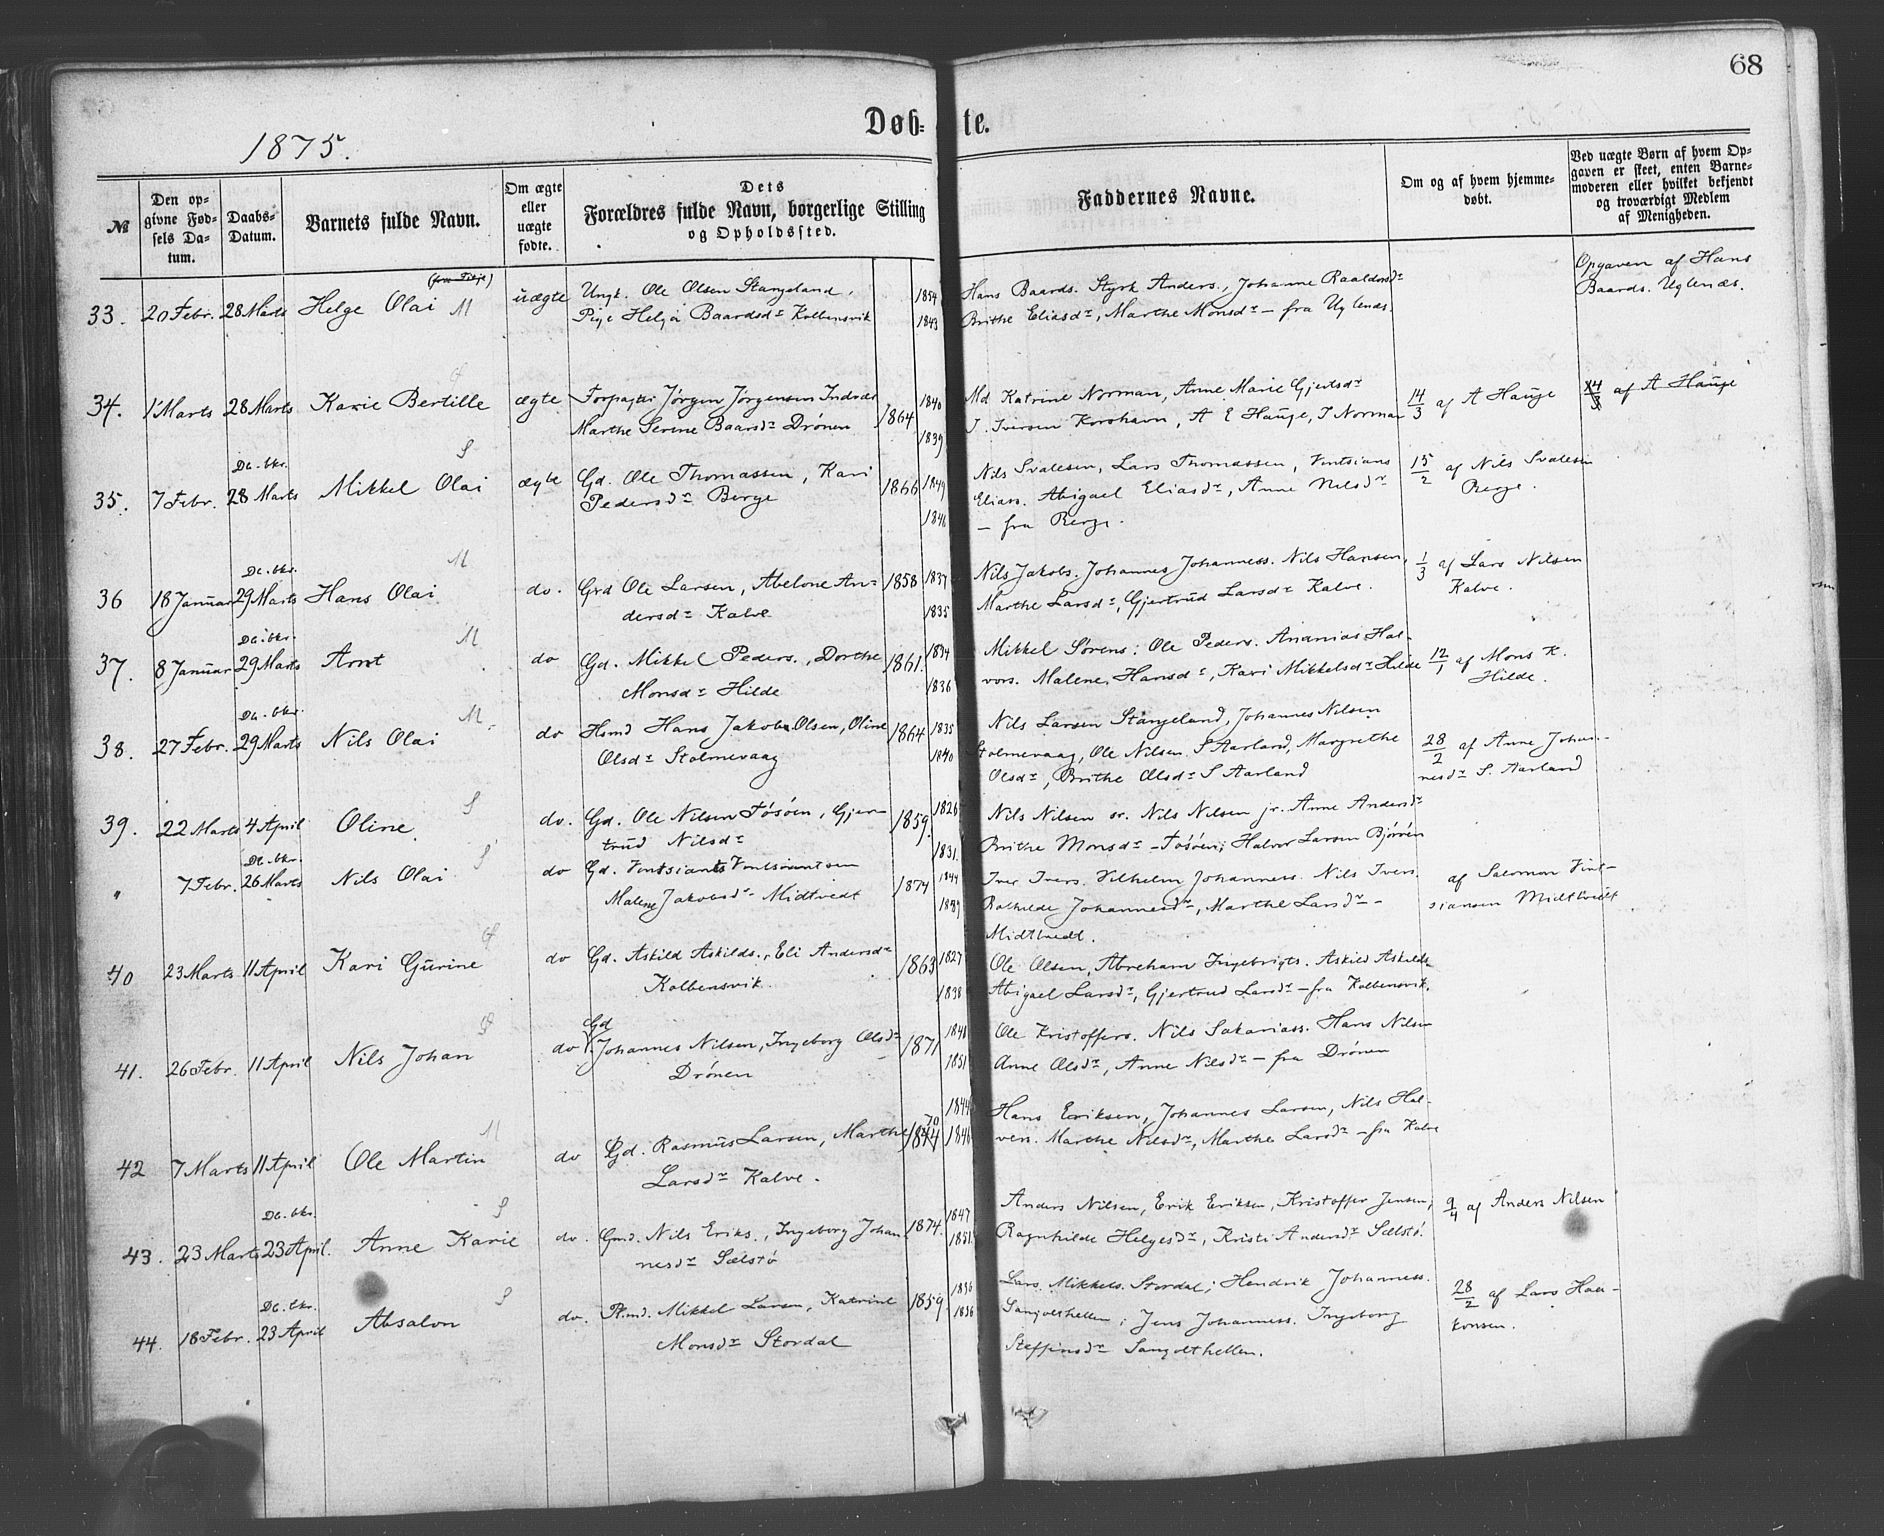 68
Døb- te.
1875.
№
Den op-
givne Fød-
sels Da-
tum.
Daabs-
Datum.
Barnets fulde Navn.
Om ægte
eller
uægte
fødte.
Dets
Forældres fulde Navn, borgerlige Stilling
og Opholdssted.
Faddernes Navne.
Om og af hvem hjemme-
døbt.
Ved uægte Børn af hvem Op-
gaven er skeet, enten Barne-
moderen eller hvilket bekjendt
og troværdigt Medlem
af Menigheden.
33. 20 Febr. 28 Marts Helge Olai M uægte
Ungk. Ole Olsen Stangeland,
Pige Helga Baardsdr Kolbensvik
1854
1843
Hans Baards. Styrk Anders., Johanne
Brithe Eliasdr, Marthe Monsdr – fra Uglenæs.
Opgaven af Hans
Baards. Uglenæs.
34. 1 Marts 28 Marts Karie Bertille ægte
Jørgen Jørgensen
Marthe Serine Baarsdr Drönen
1864
1840
1839
Md Katrine Norman, Anne Marie Gjertsdr
J. Iversen Korshavn, A E Hauge, J Norman
14/3 af A Hauge
14/3 af A Hauge
35. 7 Febr. Db. bkr. 28 Marts Mikkel Olai S ægte
Gd. Ole Thomassen, Kari
Pedersdr Berge
1866
1849
1846
Nils Svalesen, Lars Thomassen, Vintsians
Elias. Abigael Eliasdr, Anne Nilsdr
– fra Berge.
15/2 af Nils Svalesen
Berge.
36 18 Januar Db. bkr. 29 Marts Hans Olai M do.
Grd Ole Larsen, Abelone An-
dersdr Kalve
1858
1837
1835
Nils Jakobs. Johannes Johanness. Nils Hansen,
Marthe Larsdr, Gjertrud Larsdr Kalve.
1/3 af Lars Nilsen
Kalve.
37. 8 Januar Db. bkr. 29 Marts Arnt M do
Gd. Mikkel Peders., Dorthe
Monsdr Hilde
1861.
1834
1836
Mikkel Sørens. Ole Peders. Ananias Hal-
vors. Malene Hansdr, Kari Mikkelsdr Hilde
12/1 af Mons K.
Hilde.
38. 27 Febr. Db. bkr. 29 Marts Nils Olai M. do
Hsmd Hans Jakob Olsen, Oline
Olsdr Stolmevaag
1864
1835
1840
Nils Larsen Stangeland, Johannes Nilsen
Stolmevaag, Ole Nilsen S Aarland, Margrethe
Olsdr, Brithe Olsdr S Aarland
28/2 af Anne Johan-
nesdr S. Aarland
39. 22 Marts 4 April Oline S do.
Gd. Ole Nilsen Tösöen, Gjer-
trud Nilsdr
1859.
1826
1831.
Nils Nilsen sr. Nils Nilsen jr. Anne Andersdr
Brithe Monsdr – Tösöen; Halvor Larsen Bjørøen
" 7 Febr. Db. bkr. 26 Marts Nils Olai S do
Gd. Vintsiants Vintsiantsen
Malene Jakobsdr Midtvedt
1874
1844
Iver Ivers. Vilhelm Johanness. Nils Ivers.
Johannesdr, Marthe Larsdr –
Midtvedt.
af Salomon Vint-
siansen Midtvedt
40 23 Marts 11 April Kari Gurine do
Gd. Askild Askilds., Eli Andersdr
Kolbensvik.
1863
1827
1838
Ole Olsen, Abraham Ingebrigts. Askild Askilds.
Abigael Larsdr, Gjertrud Larsdr – fra Kolbensvik.
41. 26 Febr. 11 April Nils Johan do
Gd
Johannes Nilsen, Ingeborg Olsdr
Drönen
1871
1848
1851
Ole Kristoffers. Nils Sakariass. Hans Nilsen
Anne Olsdr, Anne Nilsdr – fra Drönen
42 7 Marts 11 April Ole Martin M do
Gd. Rasmus Larsen, Marthe
Larsdr Kalve.
1844
1846
Hans Eriksen, Johannes Larsen, Nils Hal-
vors. Marthe Nilsdr, Marthe Larsdr – fra Kalve
43. 23 Marts Db. bkr. 23 April. Anne Karie S do.
Gmd. Nils Eriks., Ingeborg Johan
nesdr Sælstø
1874.
1847
1851.
Anders Nilsen, Erik Eriksen, Kristoffer Jensen,
Ragnhilde Helgesdr, Kristi Andersdr Sælstø.
9/4 af Anders Nilsen
44. 18 Febr. Db. bkr. 23 April Absalon S do.
Mikkel Larsen, Katrine
Monsdr Stordal
1859.
1836
1836
Lars Mikkels. Stordal; Hendrik Johanness.
Sangolthellen; Jens Johanness. Ingeborg
Steffensdr Sangolthellen.
28/2 af Lars Haa-
konsen.